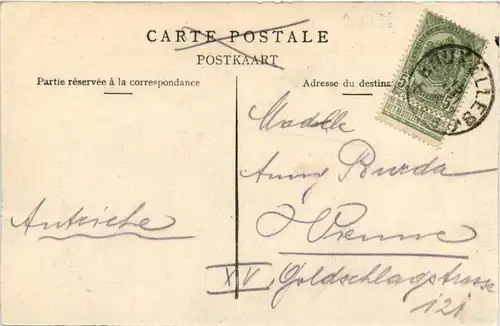 CARTE POSTALE
POSTKAART
Partie réservée à la correspondance
Adresse du destina
BRUXELLES
Madelle
Burda
Autriche
Vienne
XV, Goldschlagstrasse
121